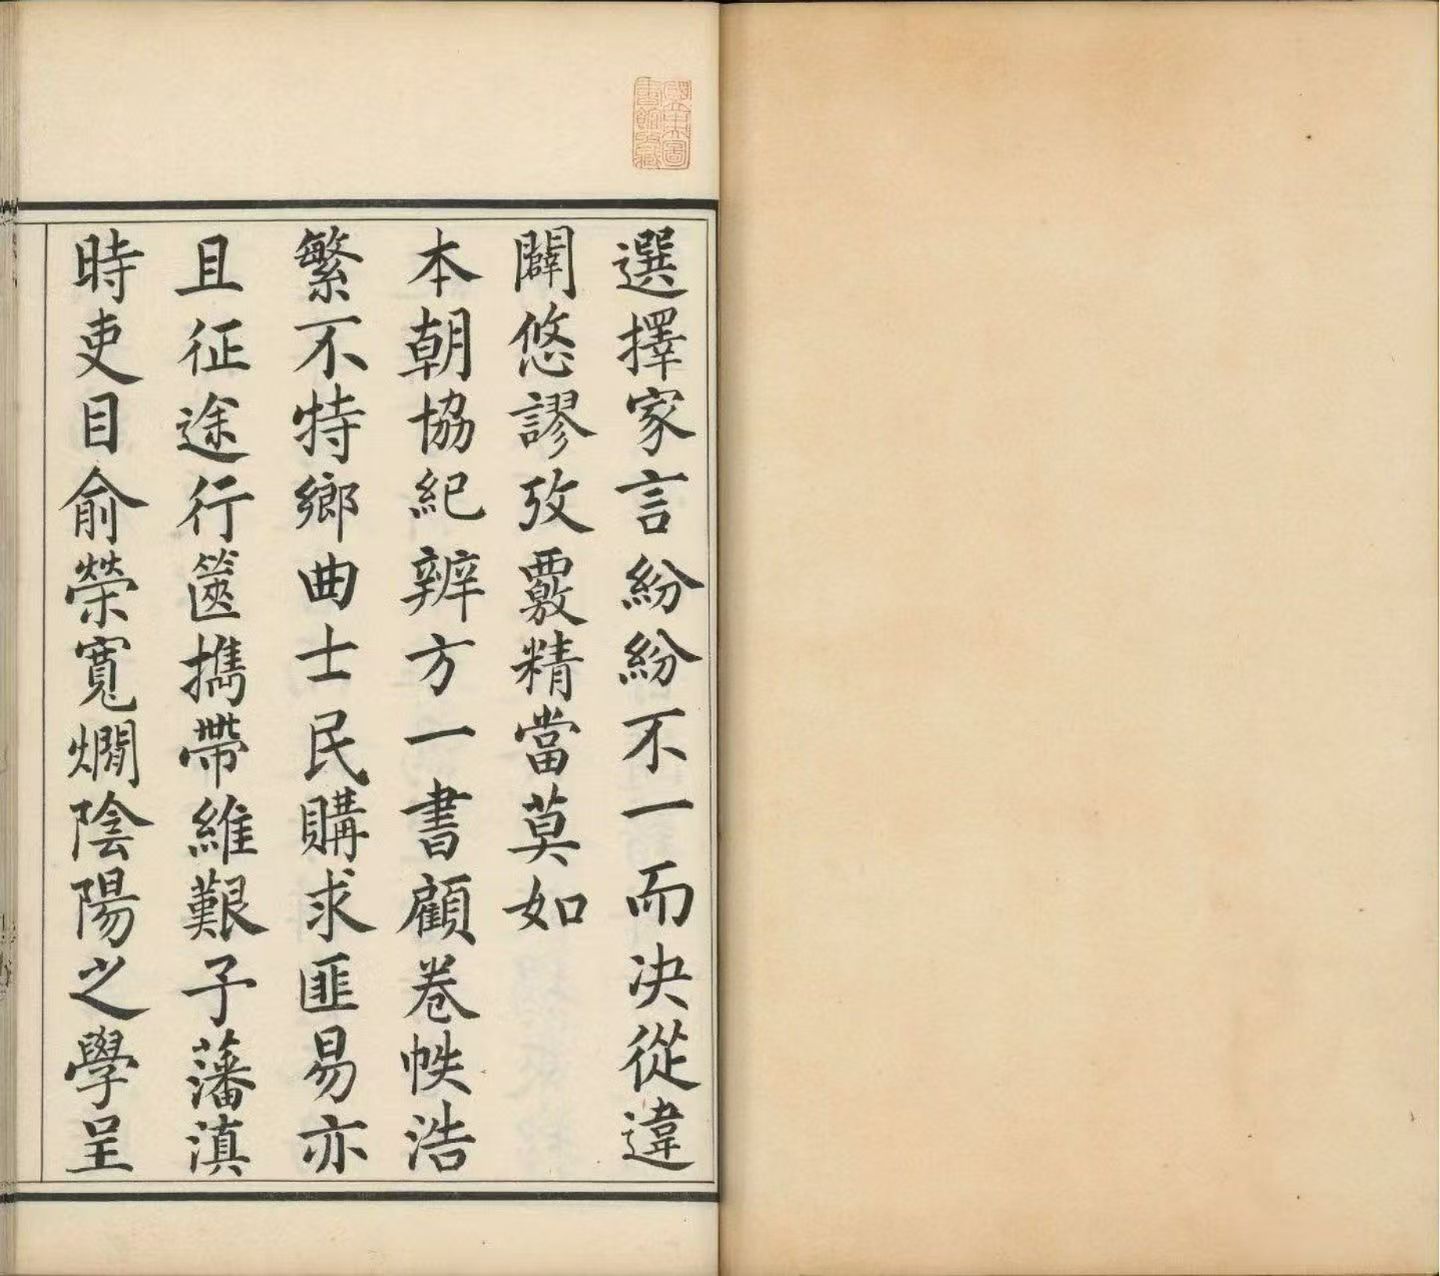 選擇家言紛紛不一而决從違
闢悠謬攷覈精當莫如
本朝協紀辨方一書顧卷帙浩
繁不特鄉曲士民購求匪易亦
且征途行篋攜帶維艱予藩滇
時吏目俞榮寬爓陰陽之學呈